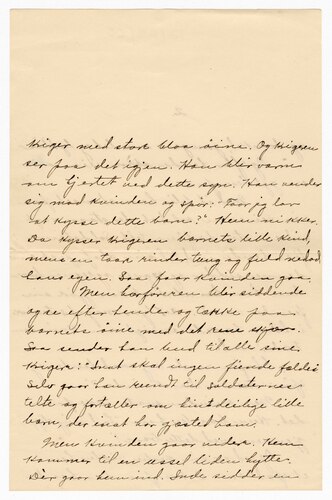 kriger med stork blaa øine. Og krigren
ser paa det igjen. Han blir varm
om hjertet ved dette syn. Han vender
sig mod kvinden og spør: "Faar jeg lov
at kysse dette barn?" Hun nikker.
Da kysser krigeren barnets lille kind,
mens en taar rinder tung og fuld nedad
hans egen. Saa faar kvinden gaa.
Men hærføreren blir siddende
og se efter hende og tænke paa
barnets øine med det rene skjær.
Saa sender han bud til alle sine
krigere: "Snut skal ingen fiende falde."
Selv gaar han rundt til soldaternes
telte og fortæller om hint deilige lille
barn, der inat har gjæsted ham.
Men kvinden gaar videre. Hun
kommer til en ussel liden hytte.
Der gaar hun ind. Inde sidder en